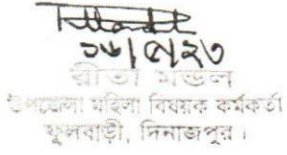 ১৬/৭/২৩
রীতা মন্ডল
উপজেলা মহিলা বিষয়ক কর্মকর্তা
ফুলবাড়ী, দিনাজপুর।